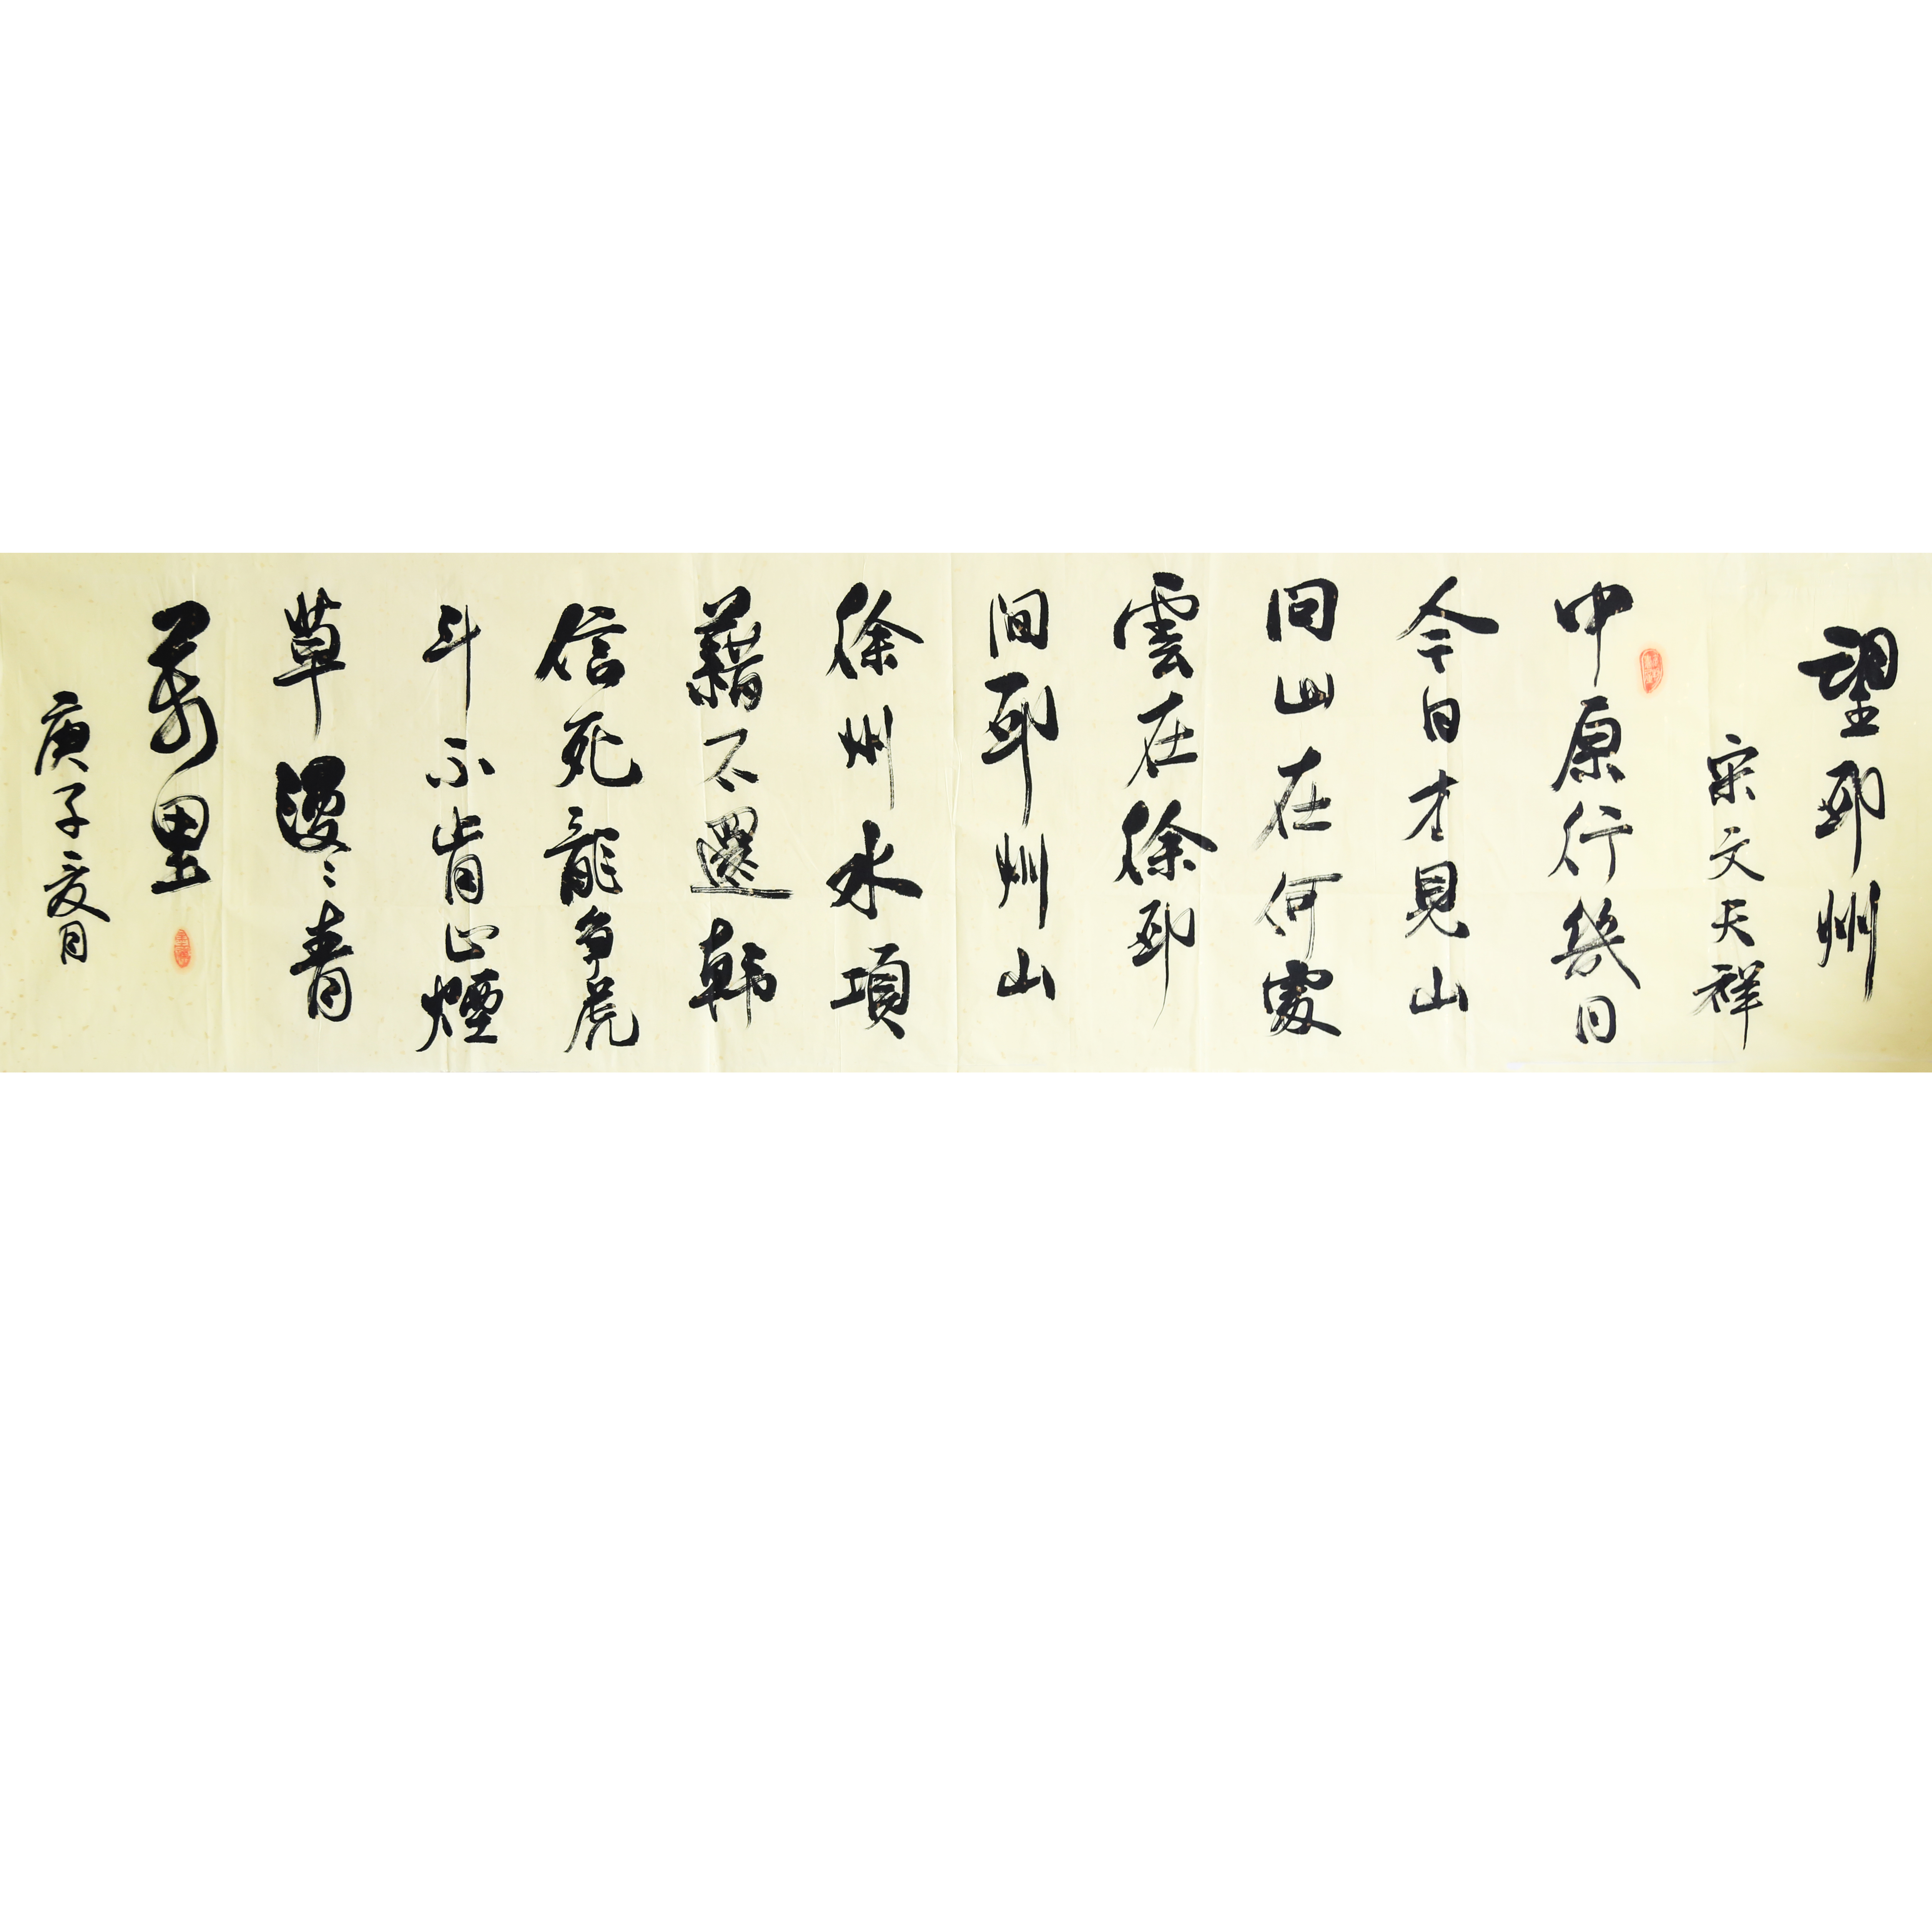 望邳州
宋文天祥
中原行幾日
今日才見山
问山在何處
雲在徐邳
间邳州山
徐州水項
藉不還韩
信死龍争虎
斗不肯止煙
草漫々青
萬里
庚子夏月